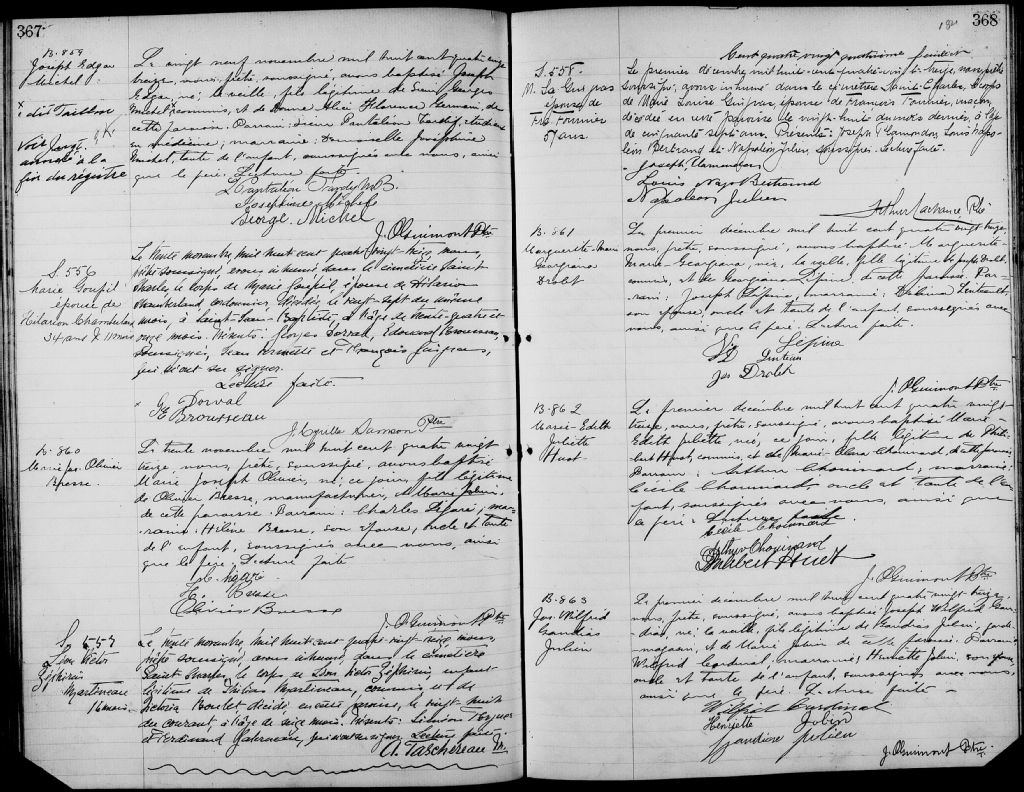 367
B. 859
Joseph Edgar
Michel.
x dit Taillon
Voir
annexé à la
fin du registre
Le vingt neuf novembre mil huit cent quatre vingt
treize, nous, prêtre, soussigné, avons baptisé Joseph
Edgar, né, la veille, fils légitime de Georges
Michel, commis, et de Alice Florence Germain de
cette paroisse. Parrain: Pantaléon Tardif, étudiant
en médecine; marraine: Joséphine
tante de l'enfant, soussignés avec nous, ainsi
que le père. Lecture faite.
Pantaléon Tardif M.B.
Joséphine Michel
George Michel
J. O. Guimont Ptre
S. 556
Marie Goupil
épouse de
Hilarion Chamberland
34 ans & 11 mois
Le trente novembre, mil huit cent quatre vingt treize, nous,
prêtre soussigné, avons inhumé dans le cimetière Saint
Charles, le corps de Marie Goupil, épouse de Hilarion
Chamberland, cordonnier, décédée, le vingt-sept du même
mois, à Saint Jean-Baptiste, à l'âge de trente quatre et
onze mois. Présents: Georges Dorval, Edouard Brousseau,
soussignés, Jean et François
qui n'ont su signer.
Lecture faite
x G Dorval
E Brousseau
J. Cyrille Ptre
B. 860
Marie Jos. Olivier
Bresse.
Le trente novembre mil huit cent quatre vingt
treize, nous, prêtre, soussigné, avons baptisé
Marie Joseph Olivier, né, ce jour, fils légitime
de Olivier Bresse, manufacturier, et de Marie
de cette paroisse. Parrain: Charles
marraine: Hélène Bresse, son épouse, oncle et tante
de l'enfant, soussignés avec nous, ainsi
que le père. Lecture faite
H. Bresse
Olivier Bresse
J. O. Guimont Ptre
S. 557
Léon Victor
Zéphirin
Martineau
16 mois
Le trente novembre, mil huit cent quatre vingt treize, nous,
prêtre soussigné, avons inhumé, dans le cimetière
Saint Charles, le corps de Léon Victor Zéphirin, enfant
légitime de Martineau, commis et de
Victoria Boulet, décédé, en cette paroisse, le vingt huit
du courant, à l'âge de seize mois. Présents: Siméon
et Ferdinand qui n'ont su signer. Lecture faite.
A. Taschereau Ptr.
368
184
Cent quatre vingt quatrième feuillet
S. 558.
M. Ls Guigras
épouse de
Frs Fournier
57 ans
Le premier décembre mil huit cent quatre-vingt-treize, nous, prêtre
soussigné, avons inhumé dans le cimetière Saint Charles, le corps
de Marie Louise Guigras, épouse de François Fournier, maçon,
décédée en cette paroisse le vingt-huit du mois dernier, à l'âge
de cinquante sept ans. Présents: Joseph Gamondon, Louis Napo-
léon Bertrand et Napoléon Julien, soussignés. Lecture faite.
Joseph
Louis Nap Bertrand
Napoléon Julien
Arthur Lachance Ptre
B. 861
Marguerite-Marie
Georgiana
Drolet
Le premier décembre mil huit cent quatre vingt treize,
nous, prêtre, soussigné, avons baptisé Marguerite-
Marie-Georgiana, née, la veille, fille légitime de Joseph Drolet,
commis, et de Georgiana Lépine, de cette paroisse. Par-
rain: Joseph Lépine, marraine:
son épouse, oncle et tante de l'enfant, soussignés avec
nous, ainsi que le père. Lecture faite.
Lépine
Jos Drolet
J. O. Guimont Ptre
B. 862
Marie-Edith
Juliette
Huot
Le premier décembre mil huit cent quatre vingt
treize, nous, prêtre, soussigné, avons baptisé Marie
Edith Juliette, née, ce jour, fille légitime de Phili-
bert Huot, commis, et de Marie Chouinard, de cette paroisse.
Parrain: Arthur Chouinard, marraine:
Cécile Chouinard, oncle et tante de l'en-
fant, soussignés avec nous, ainsi que
le père. Lecture faite.
Cécile Chouinard
Arthur Chouinard
Philibert Huot
J. O. Guimont Ptre
B. 863
Jos. Wilfrid
Gaudias
Julien
Le premier décembre mil huit cent quatre-vingt-treize,
nous, prêtre, soussigné, avons baptisé Joseph Wilfrid Gau-
dias, né, la veille, fils légitime de Gaudias Julien, garde
magasin, et de Marie de cette paroisse. Parrain
Wilfrid Cardinal, marraine; Henriette Julien, son épouse,
oncle et tante de l'enfant, soussignés avec nous,
ainsi que le père. Lecture faite
Wilfrid Cardinal
Henriette Julien
Gaudiose Julien
J. O. Guimont Ptre